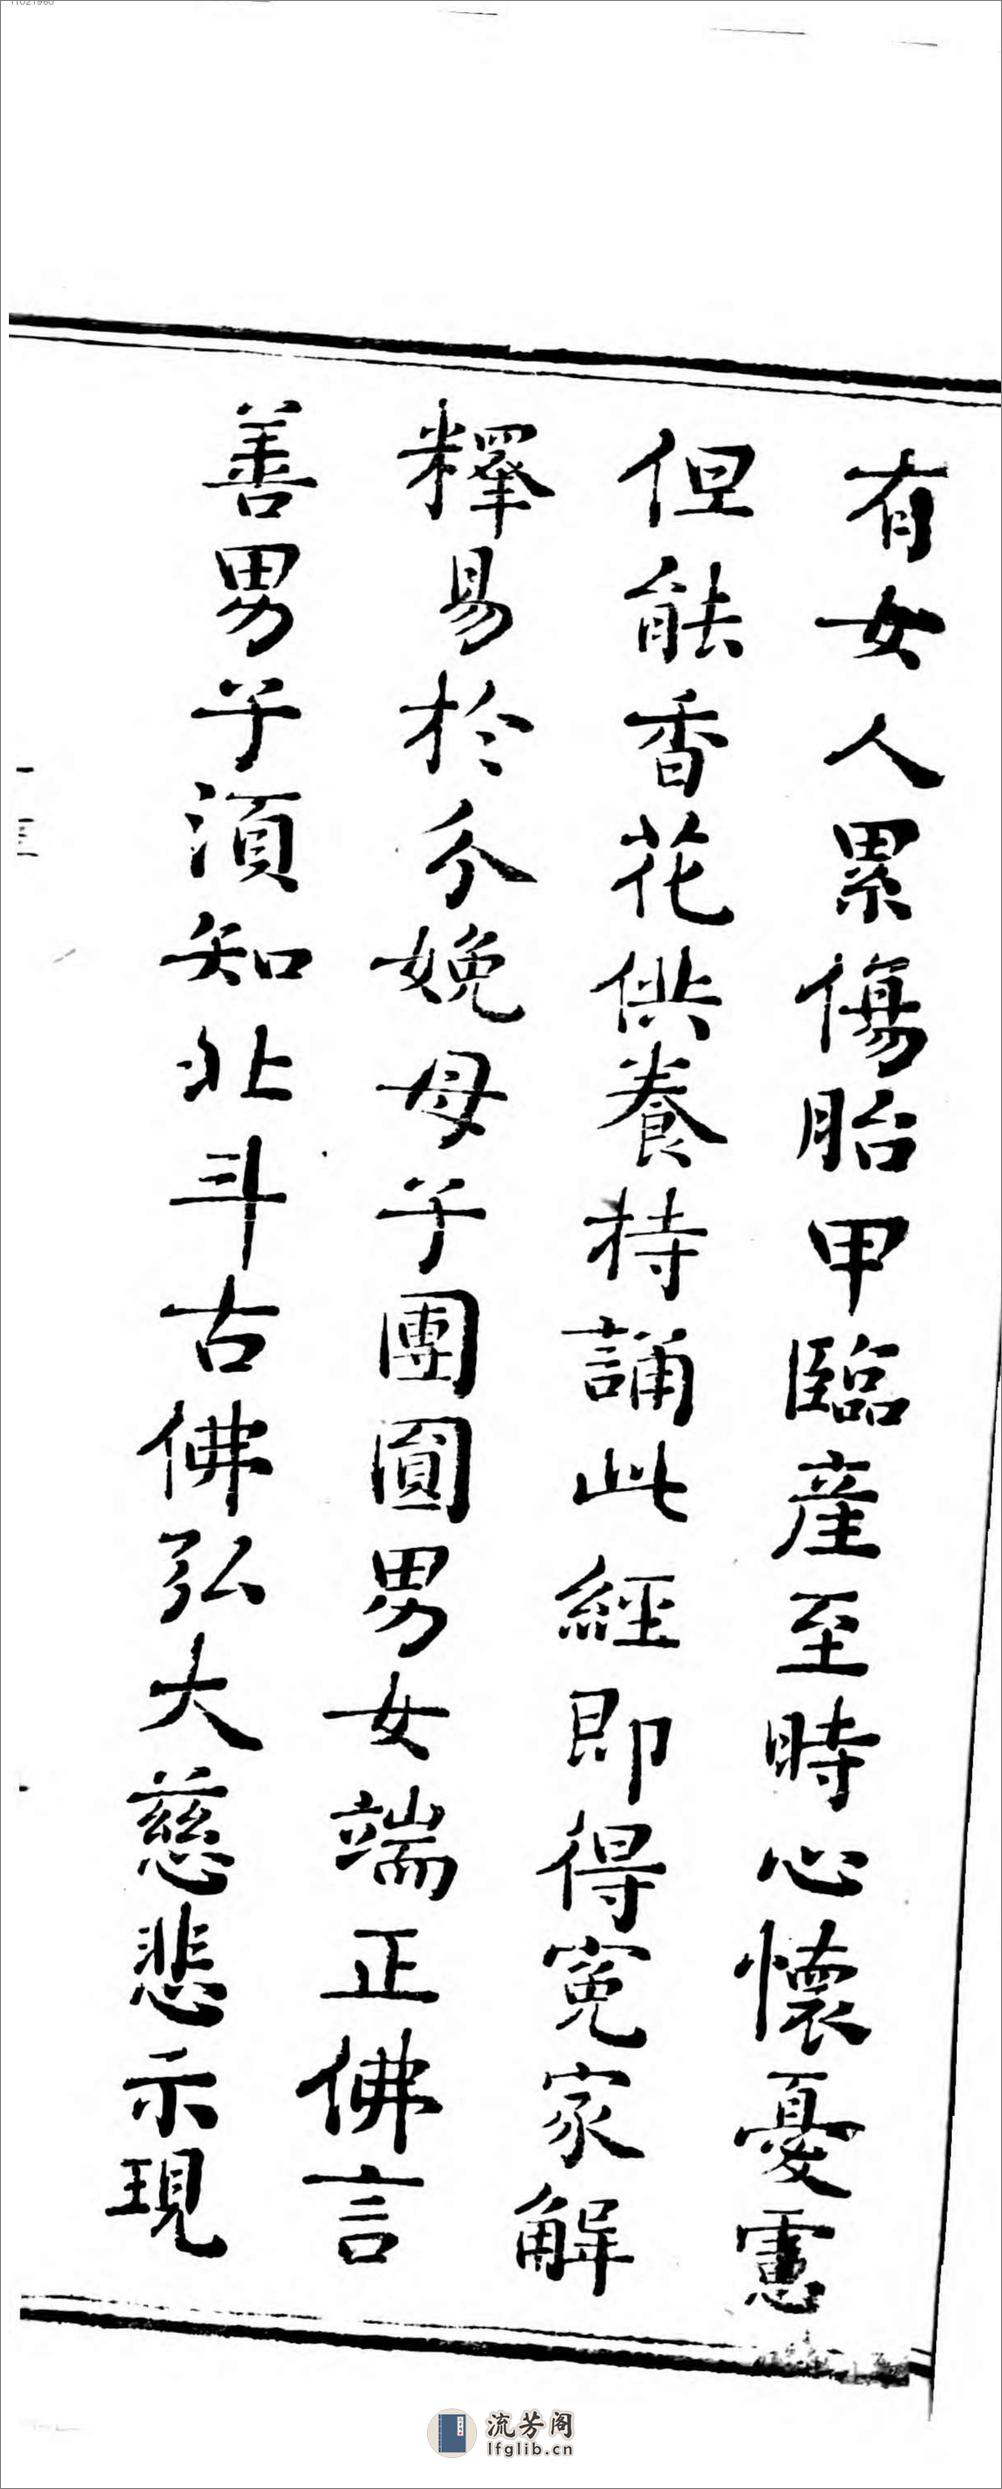 有女人累傷胎甲臨産至時心懷憂慮
但能香花供養持誦此經即得冤家解
釋易於分娩母子團圓男女端正佛言
善男子須知北斗古佛弘大慈悲示現
流芳阁
lfglib.cn